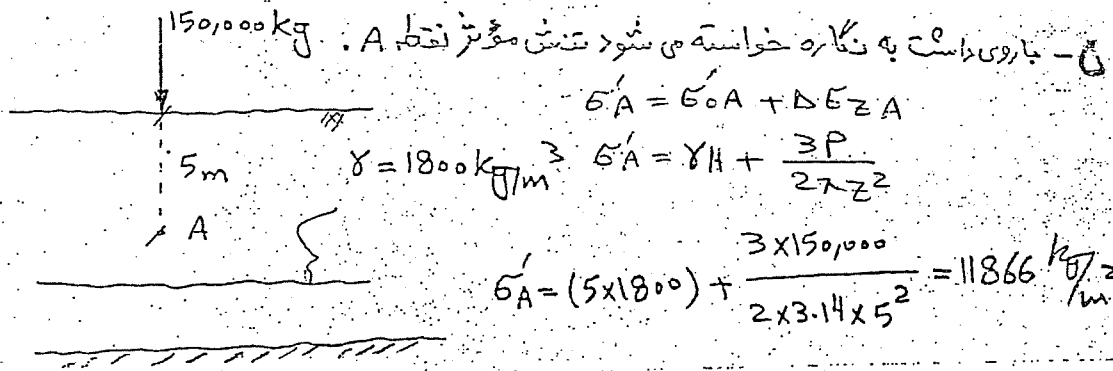 150,000 kg
ن - باروی داشت به نگاره خواسته می شود تنش مؤثر نقطه A .
σ'A = σ₀A + ΔσZA
5m
γ = 1800 kg/m³
σ'A = γH + 3P / 2πz²
A
σ'A = (5×1800) + 3×150,000 / 2×3.14×5² = 11866 kg/m²